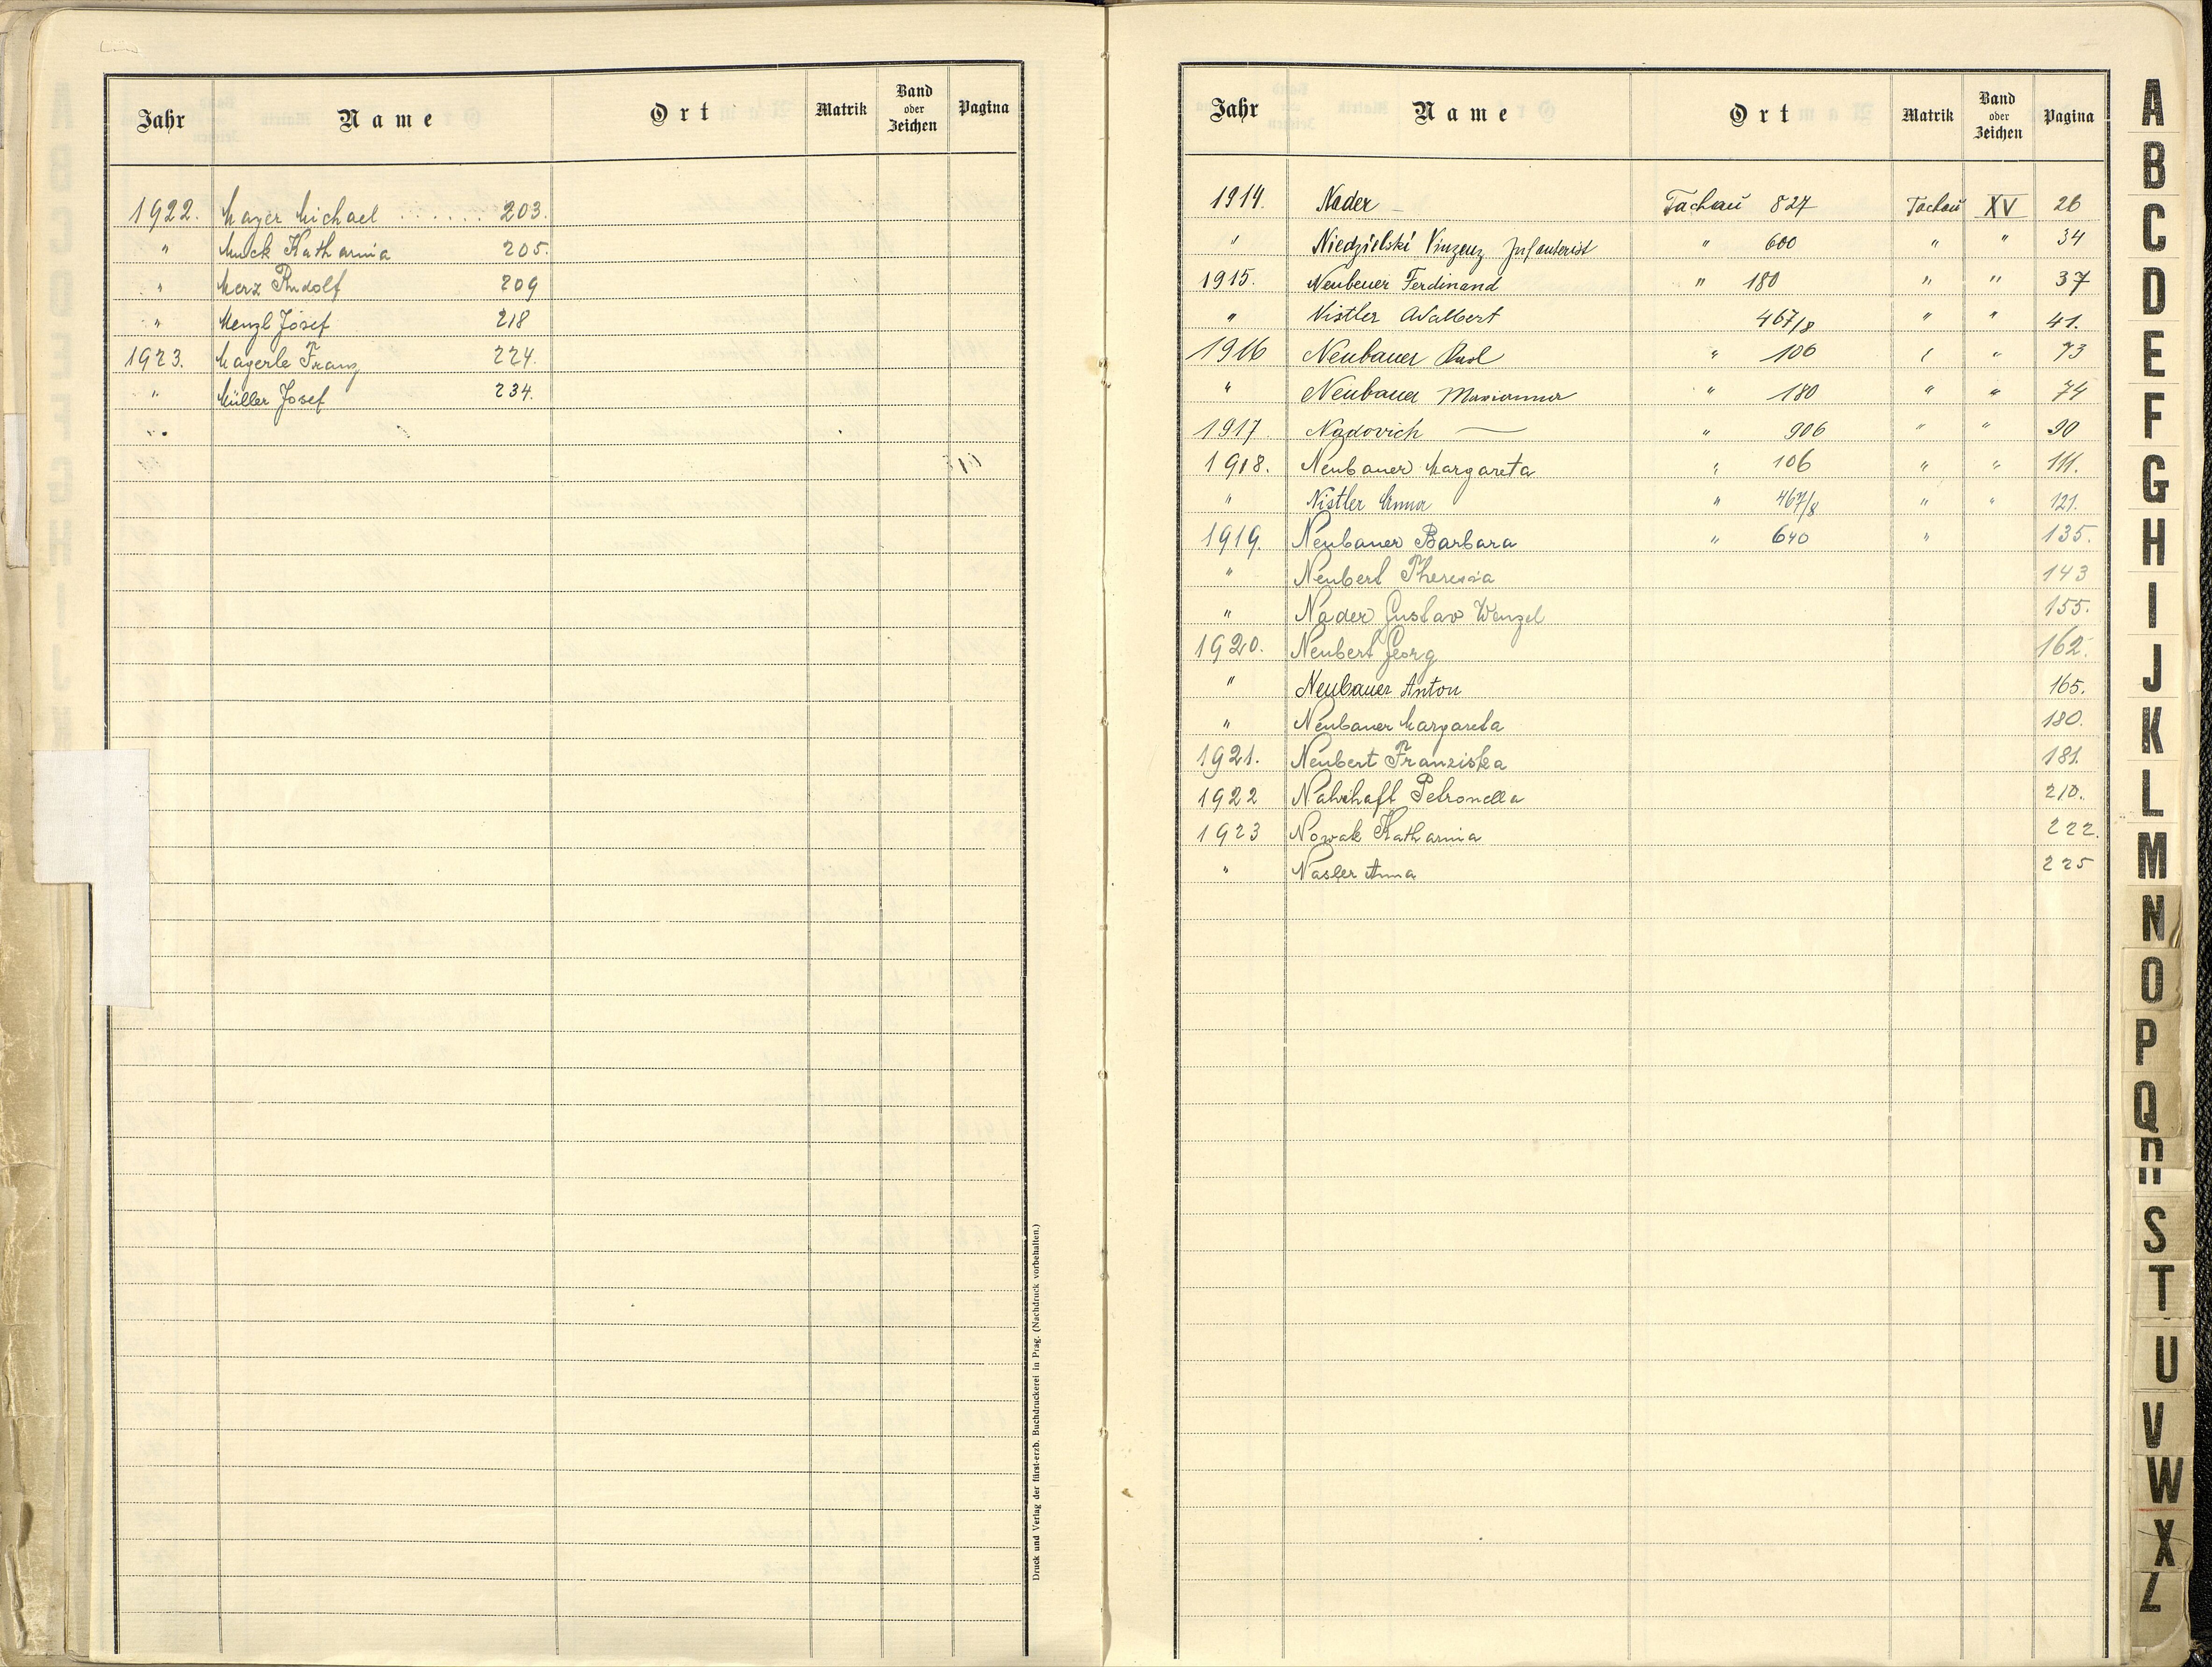 Jahr Name Ort Matrik Band oder Zeichen Pagina
1922. Mayer Michael . . . . . . 203.
" Muck Katharina 205.
" Merz Rudolf 209
" Menzl Josef 218
1923. Mayerle Franz 224.
" Müller Josef 234.
Druck und Verlag der fürst-erzb. Buchdruckerei in Prag. (Nachdruck vorbehalten.)
Jahr Name Ort Matrik Band oder Zeichen Pagina
1914. Nader — Tachau 827 Tachau XV 26
" Niedzielski Vinzenz Infanterist " 600 " " 34
1915. Neubeuer Ferdinand " 180 " " 37
" Nistler Adalbert 467/8 " " 41.
1916 Neubauer " 106 " " 73
" Neubauer Marianna " 180 " " 74
1917. Nadovich — " 906 " " 90
1918. Neubauer Margareta " 106 " " 111.
" Nistler Anna " 467/8 " " 121.
1919. Neubauer Barbara " 640 " 135.
" Neubert Theresia 143
" Nader Gustav Wenzel 155.
1920. Neubert Georg 162.
" Neubauer Anton 165.
" Neubauer Margareta 180.
1921. Neubert Franziska 181.
1922 Nahrhaft Petronella 210.
1923 Nowak Katharina 222.
" Nasler Anna 225
A
B
C
D
E
F
G
H
I
J
K
L
M
N
O
P
Q
R
S
T
U
V
W
X
Z